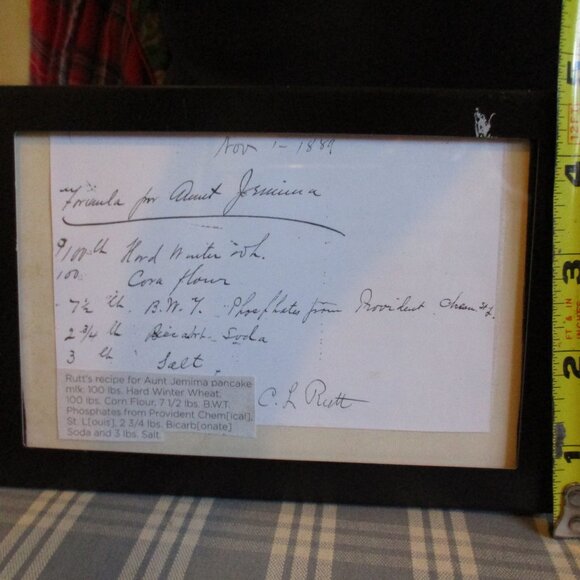 Nov 1 - 1889
Formula for Aunt Jemima
100 lb Hard Winter Wh.
100 Corn flour
7 1/2 lb. B.W.T. Phosphates from Provident Chem. St L.
2 3/4 lb Bicarb. Soda
3 lb Salt
C. L Rutt
Rutt's recipe for Aunt Jemima pancake
mix: 100 lbs. Hard Winter Wheat,
100 lbs. Corn Flour, 7 1/2 lbs. B.W.T.
Phosphates from Provident Chem[ical],
St. L[ouis], 2 3/4 lbs. Bicarb[onate]
Soda and 3 lbs. Salt.
5
4
3
2
1
12 FT
FT & IN